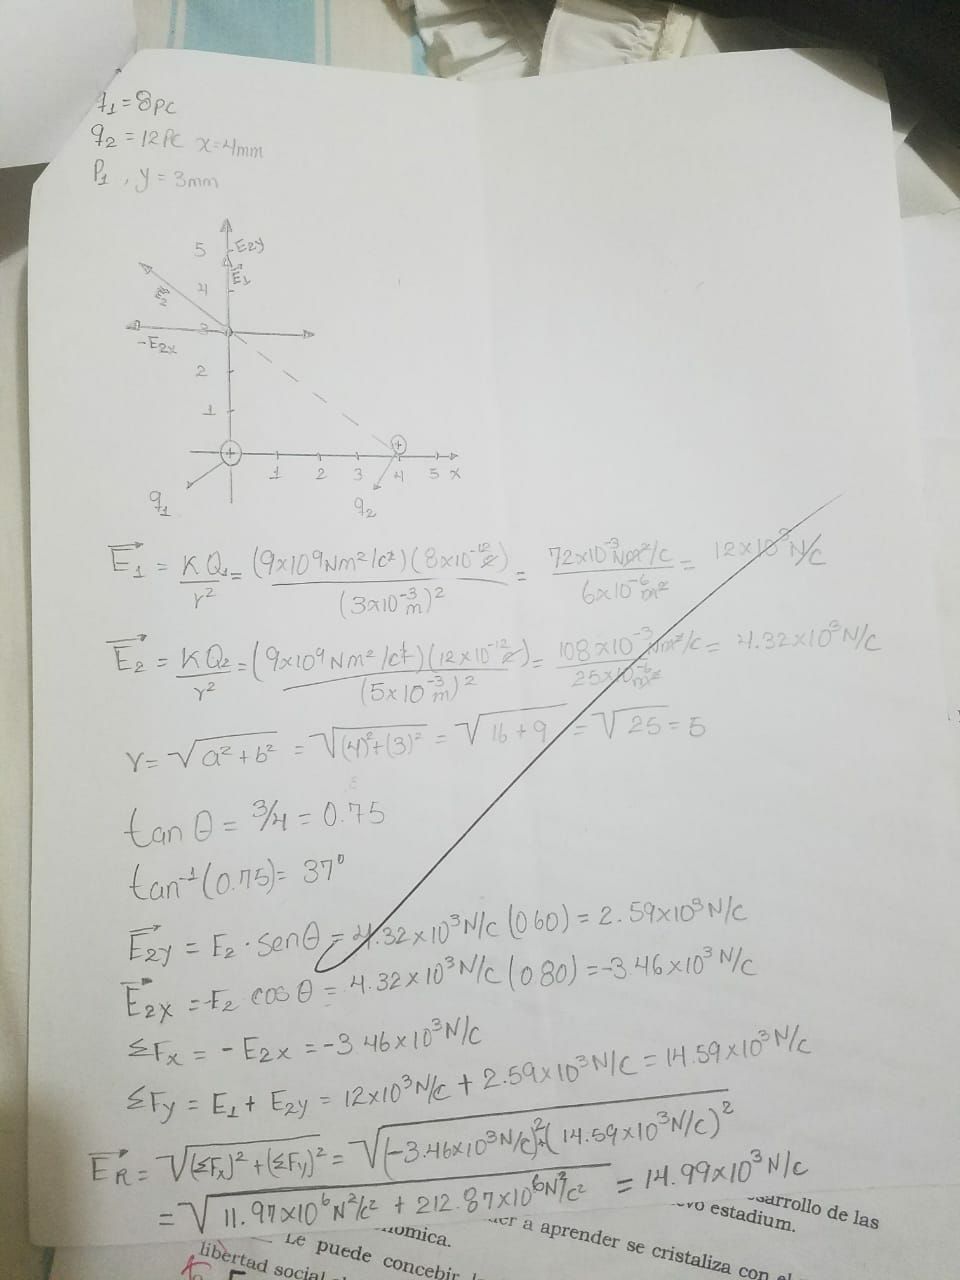 q1 = 8pC
q2 = 12PC x=4mm
P1 , y = 3mm
5 E2y
E1
4
E2
3
-E2x
2
1
+ +
1 2 3 4 5 x
q1 q2
E1 = KQ1/r² = (9x10⁹Nm²/c²)(8x10⁻¹²c)/(3x10⁻³m)² = 72x10⁻³Nm²/c / 6x10⁻⁶m² = 12x10³N/c
E2 = KQ2/r² = (9x10⁹Nm²/c²)(12x10⁻¹²c)/(5x10⁻³m)² = 108x10⁻³Nm²/c / 25x10⁻⁶m² = 4.32x10³N/c
r= √a²+b² = √(4)²+(3)² = √16+9 = √25 = 5
tan θ = 3/4 = 0.75
tan⁻¹(0.75)= 37°
E2y = E2 · senθ = 4.32x10³N/c (0.60) = 2.59x10³N/c
E2x = -E2 cos θ = 4.32x10³N/c (0.80) = -3.46x10³N/c
ΣFx = -E2x = -3.46x10³N/c
ΣFy = E1 + E2y = 12x10³N/c + 2.59x10³N/c = 14.59x10³N/c
ER = √(ΣFx)² + (ΣFy)² = √(-3.46x10³N/c)²+(14.59x10³N/c)²
= √11.97x10⁶N²/c² + 212.87x10⁶N²/c² = 14.99x10³N/c
sarrollo de las
vo estadium.
nómica.
er a aprender se cristaliza con el
Le puede concebir
libertad social